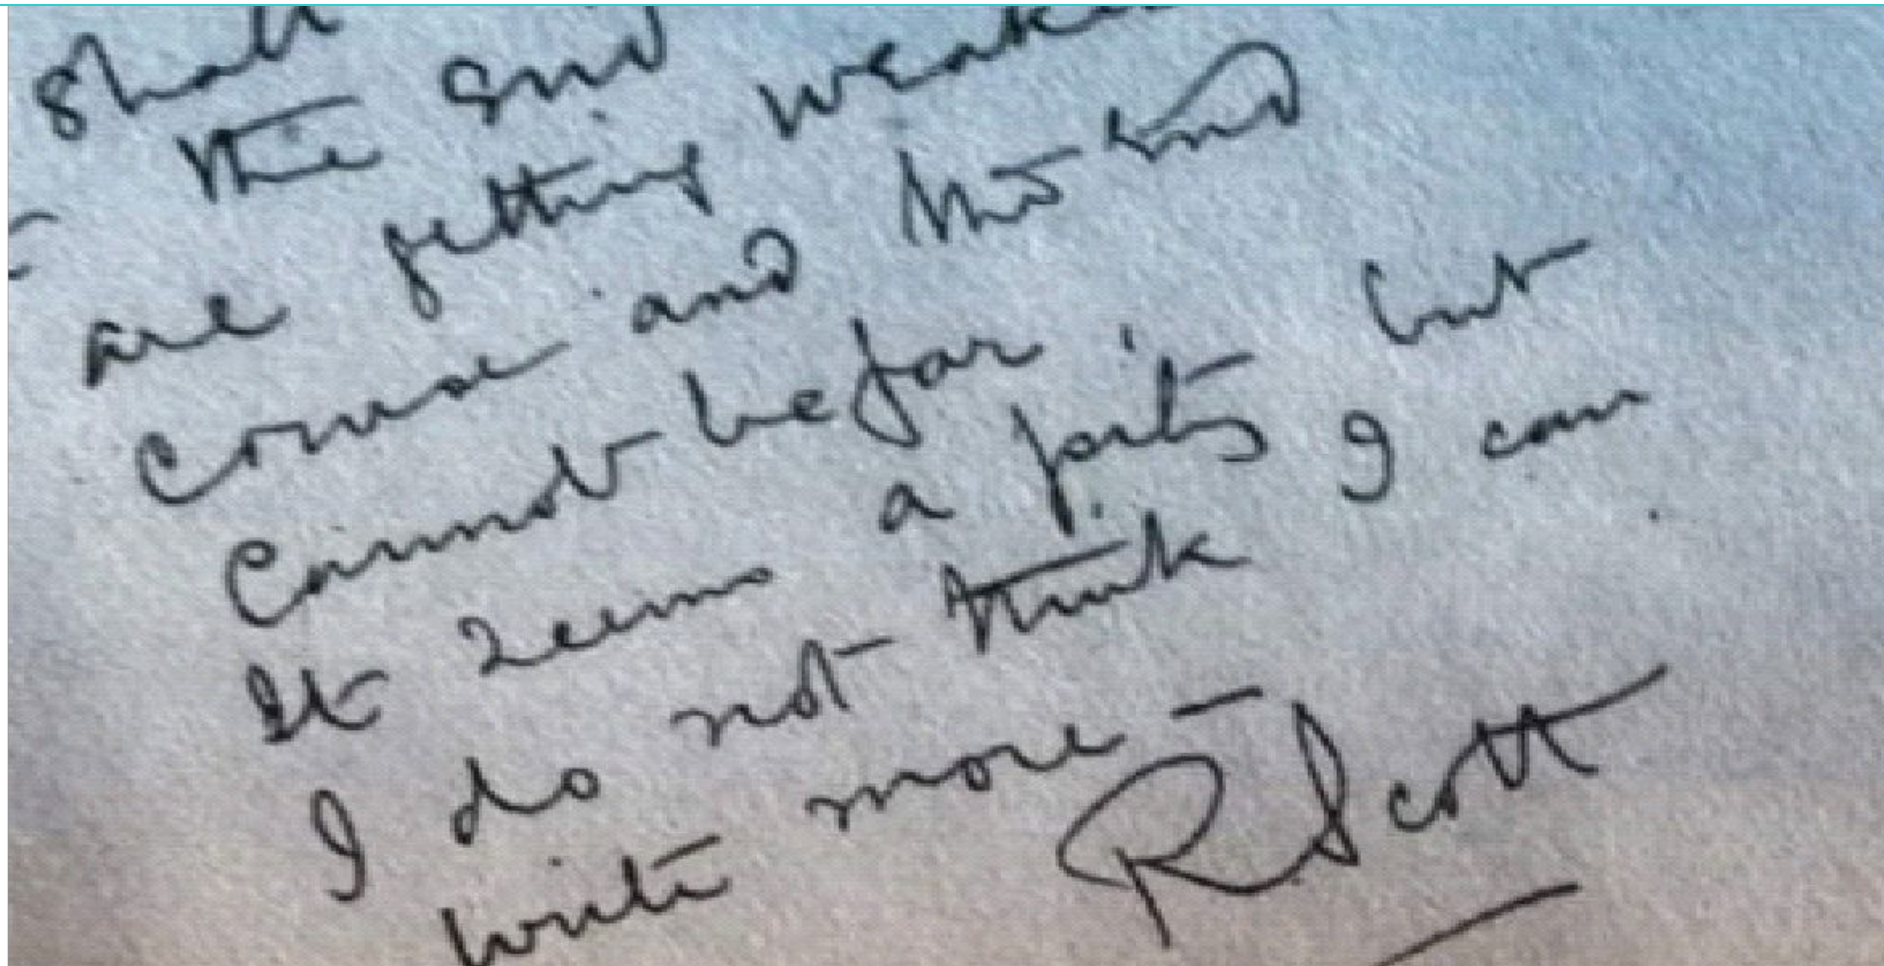 shall
the end
are getting
course and the end
cannot be far.
It seems a pity but
I do not think I can
write more –
R Scott